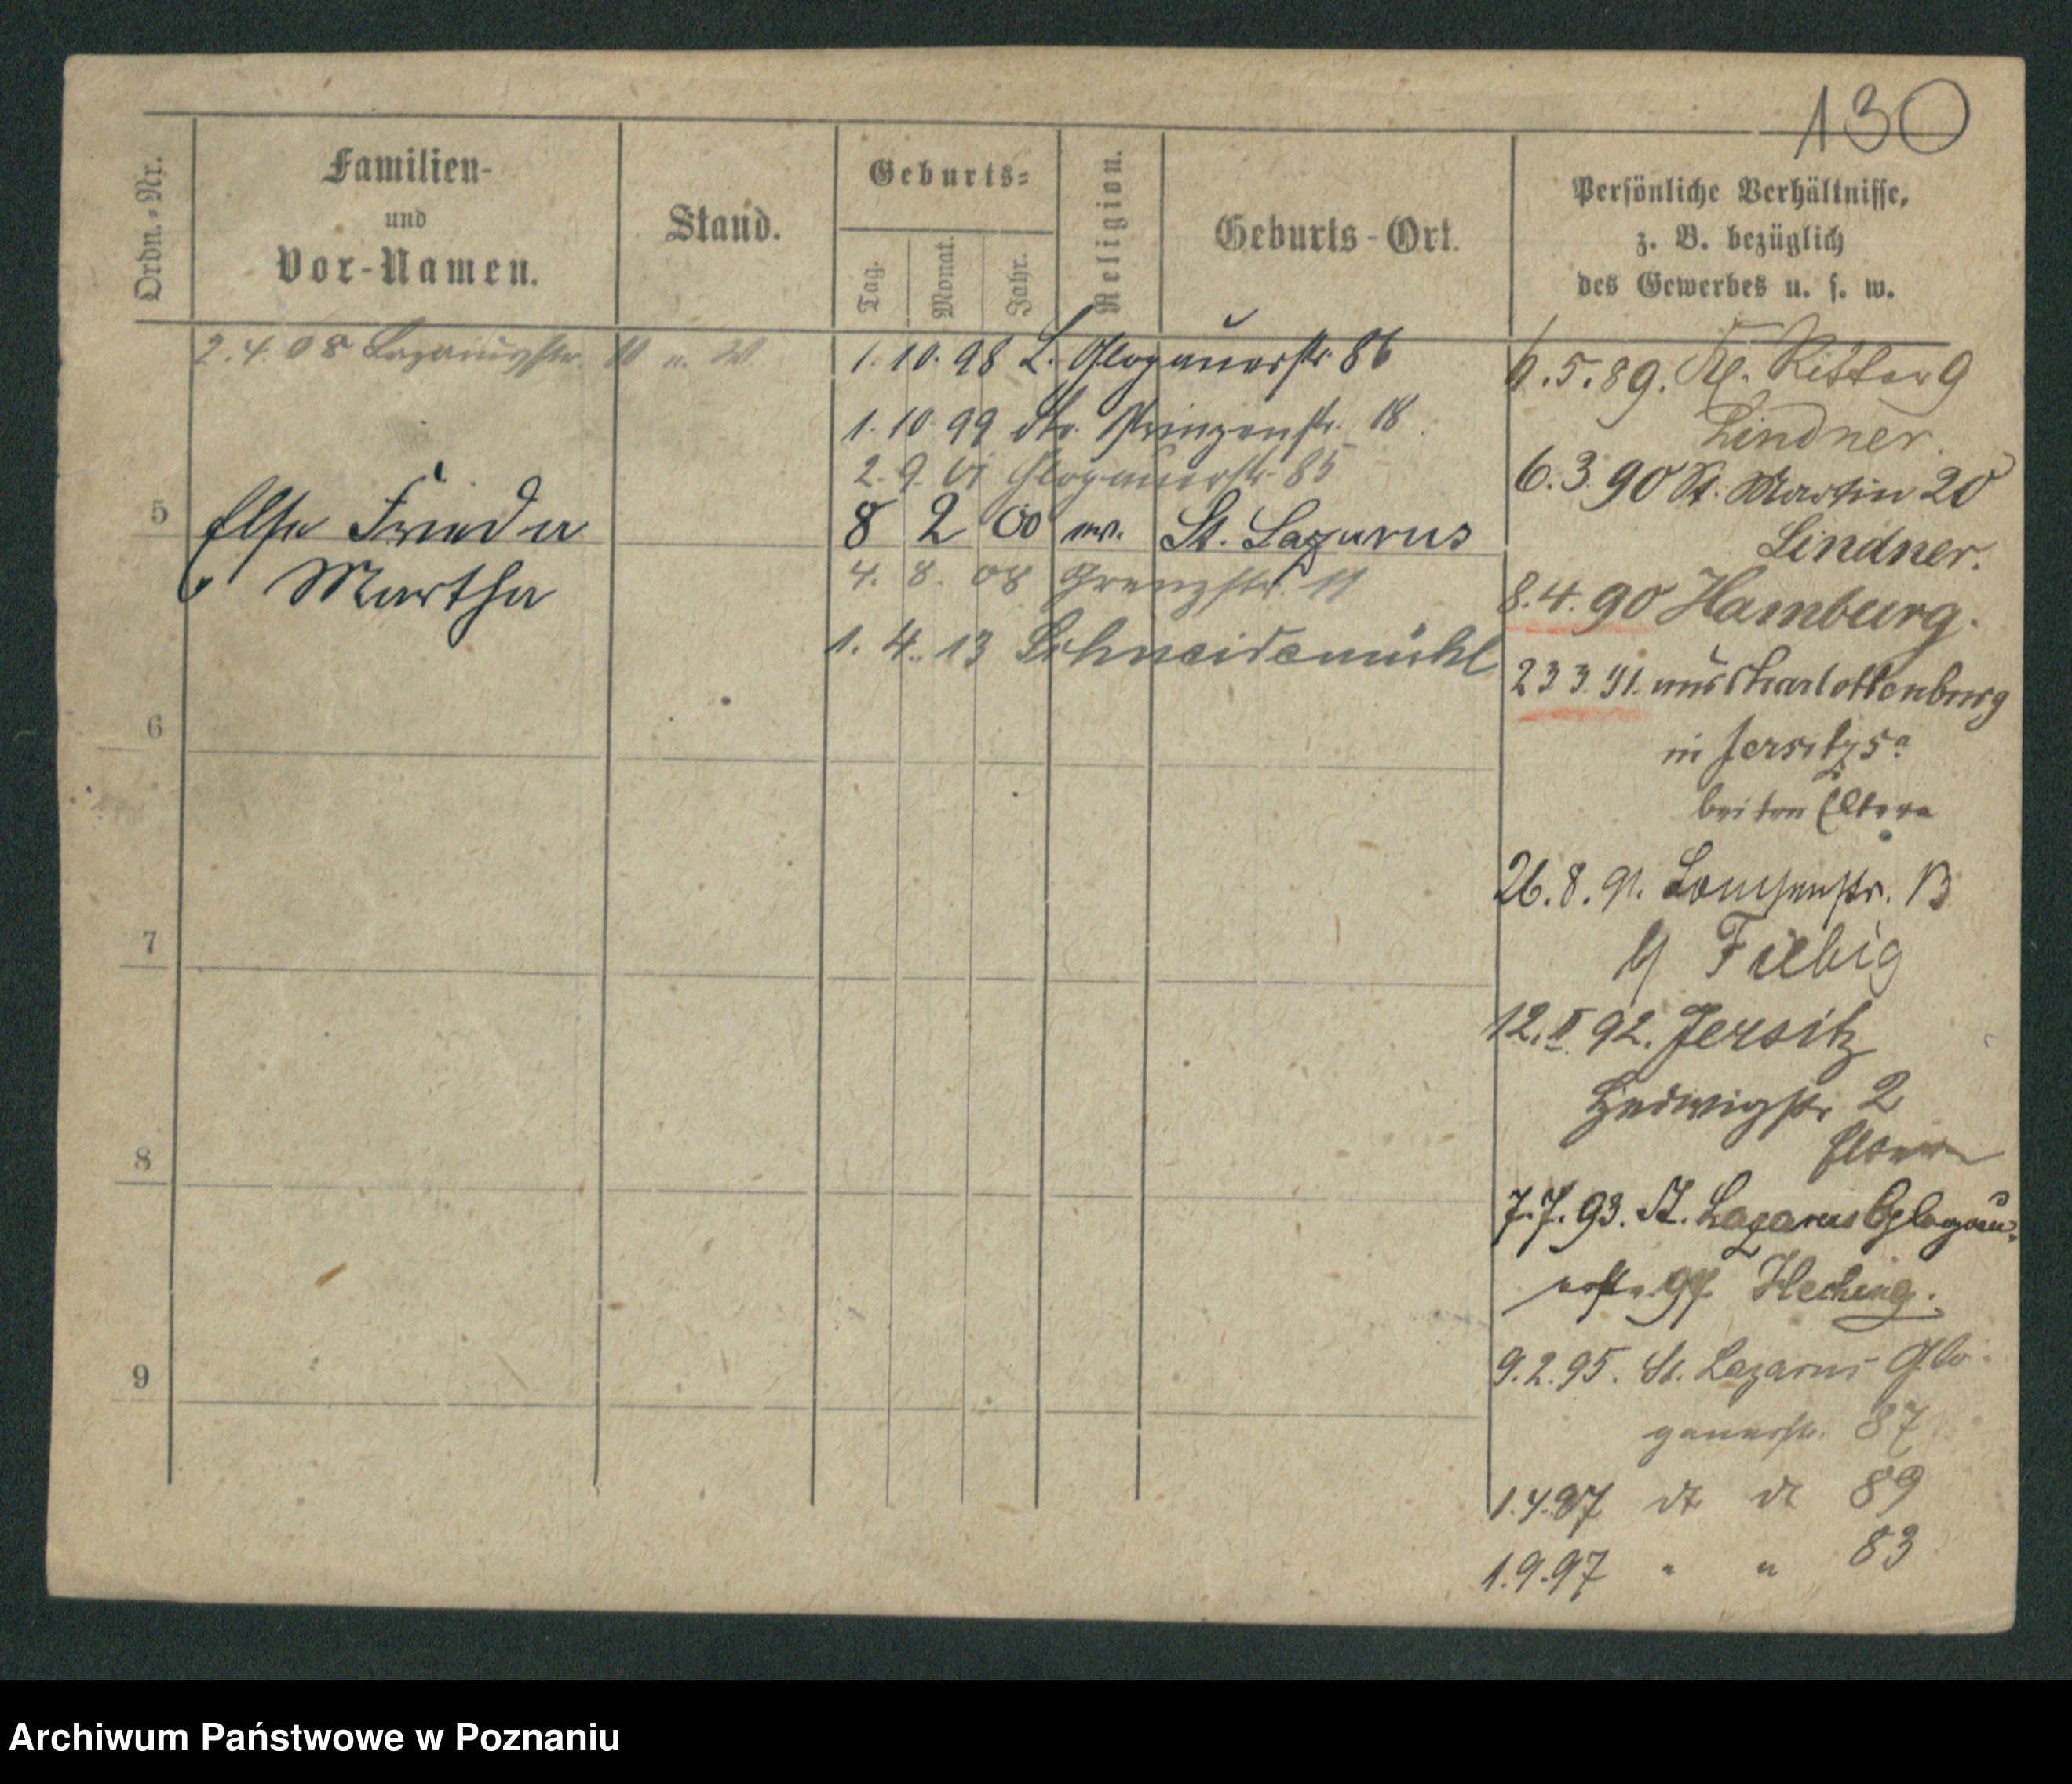 130
Ordn.-Nr.
Familien-
und
Vor-Namen.
Stand.
Geburts-
Tag.
Monat.
Jahr.
Religion.
Geburts-Ort.
Persönliche Verhältnisse,
z. B. bezüglich
des Gewerbes u. s. w.
2.4.08 Lazarusstr. 10 u. W.
1. 10. 98 L. Glogauerstr. 86
1. 10. 99 dto. Prinzenstr. 18
2. 9. 01 Glogauerstr. 85
5 Else Frieda 8 2 00 ew. St. Lazarus
Martha
4. 8. 08 Grenzstr. 11
1. 4. 13 Schneidemühl
6
7
8
9
.5.89. Kl. Ritter 9
Lindner.
6.3.90 St. Martin 20
Lindner.
8.4.90 Hamburg.
23 3. 91. aus Charlottenburg
in Jersitz 5a
bei den Eltern
26.8.91. Louisenstr. 13
b/ Fiebig
12.II.92. Jersitz
Hedwigstr. 2
Eltern
7.7.93. St. Lazarus Glogau-
erstr. Hecking.
9.2.95. St. Lazarus Glo-
gauerstr. 87
1.4.97 dt dt 89
1.9.97 " " 83
Archiwum Państwowe w Poznaniu